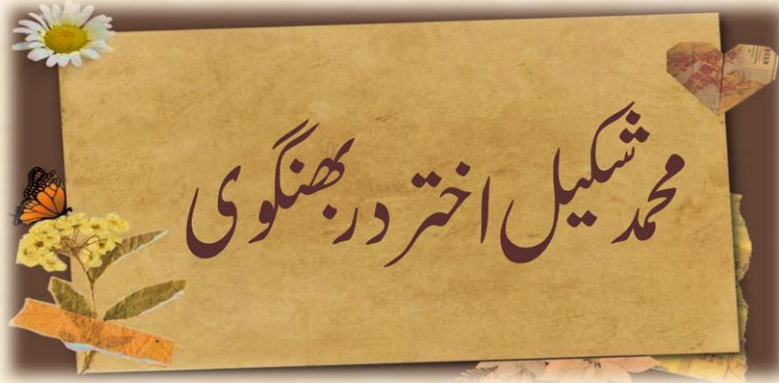 محمد شکیل اختر دربھنگوی